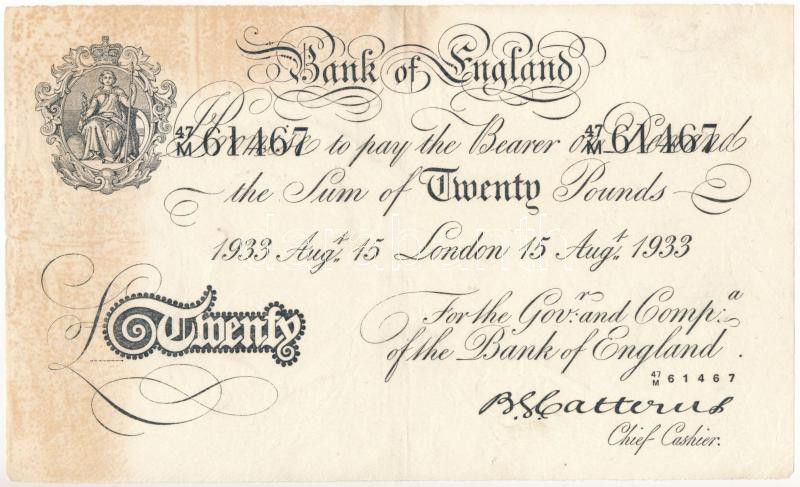 Bank of England
47/M 61467 I Promise to pay the Bearer on Demand 47/M 61467
the Sum of Twenty Pounds
1933 Augt. 15 London 15 Augt. 1933
£Twenty
For the Govr. and Compa.
of the Bank of England.
47/M 61467
B.G. Catterns
Chief Cashier.